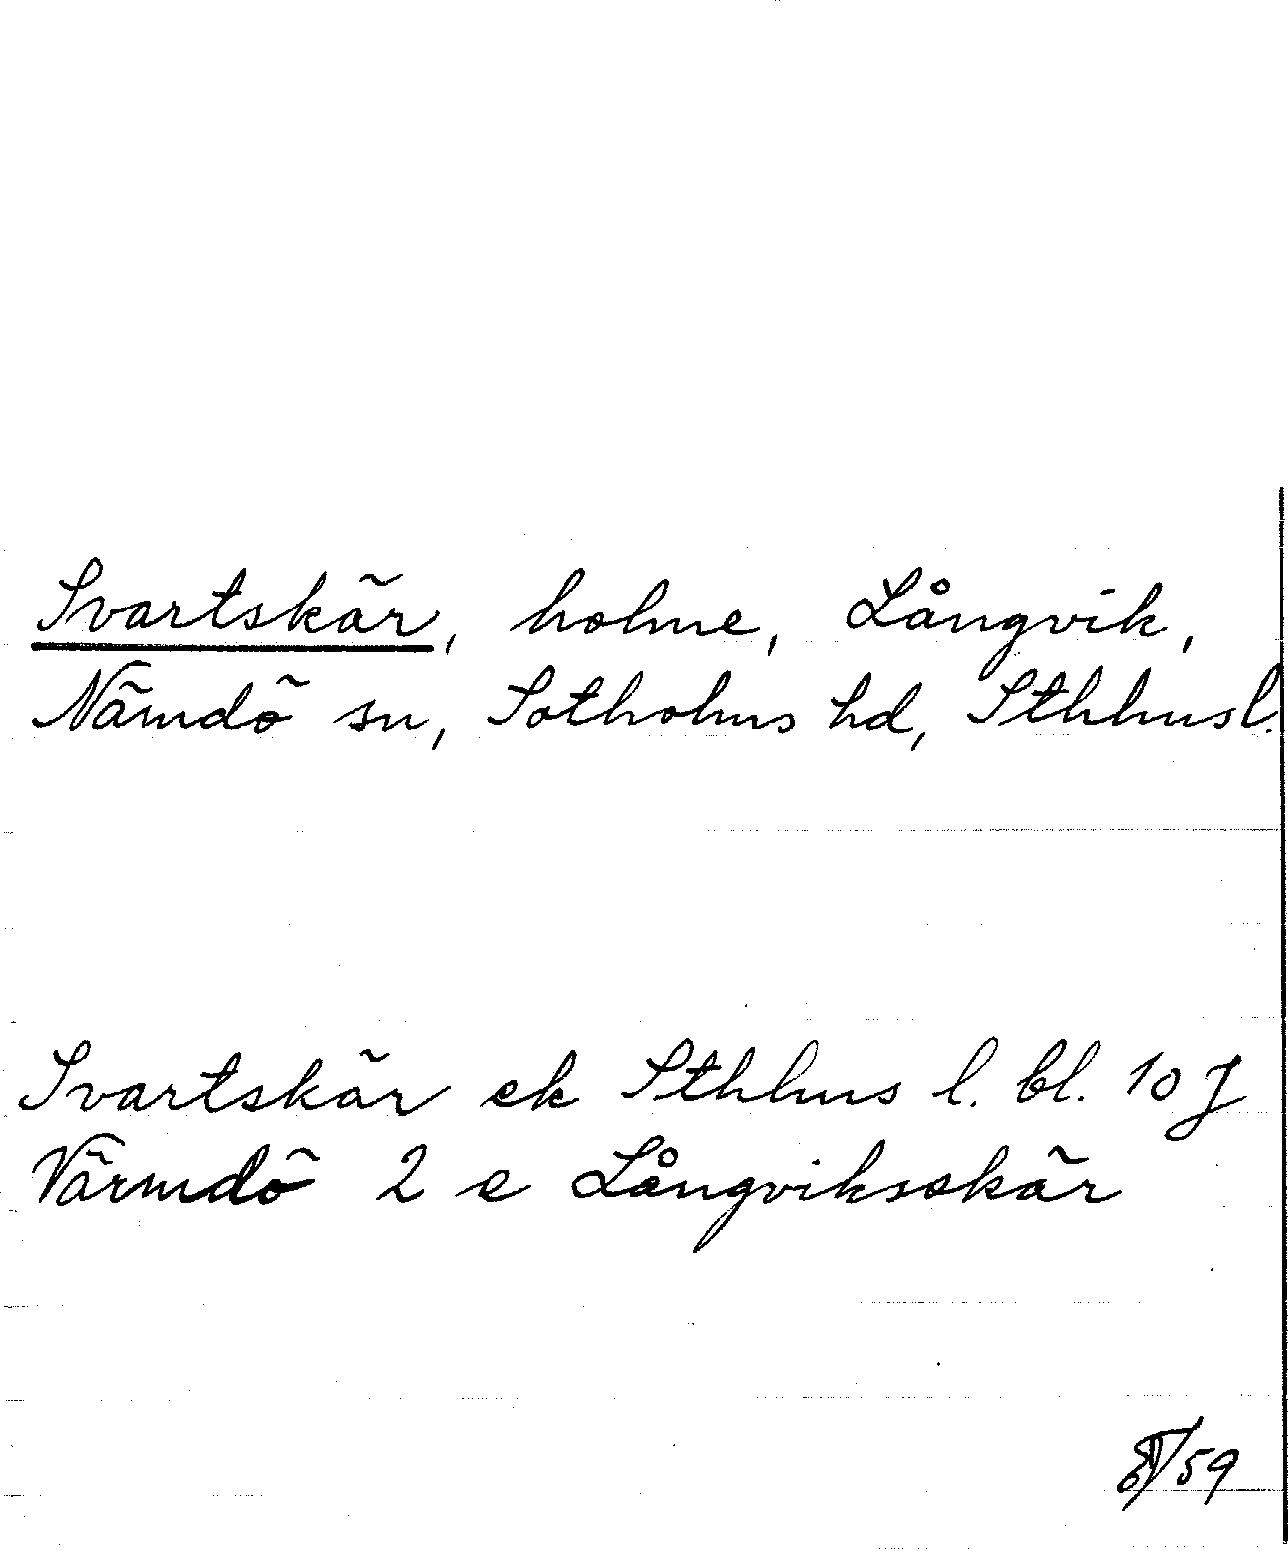 Svartskär, holme, Långvik,
Nämdö sn, Sotholms hd, Sthlmsl.
Svartskär ek Sthlms l. bl. 10 J
Värmdö 2 e Långviksskär
59